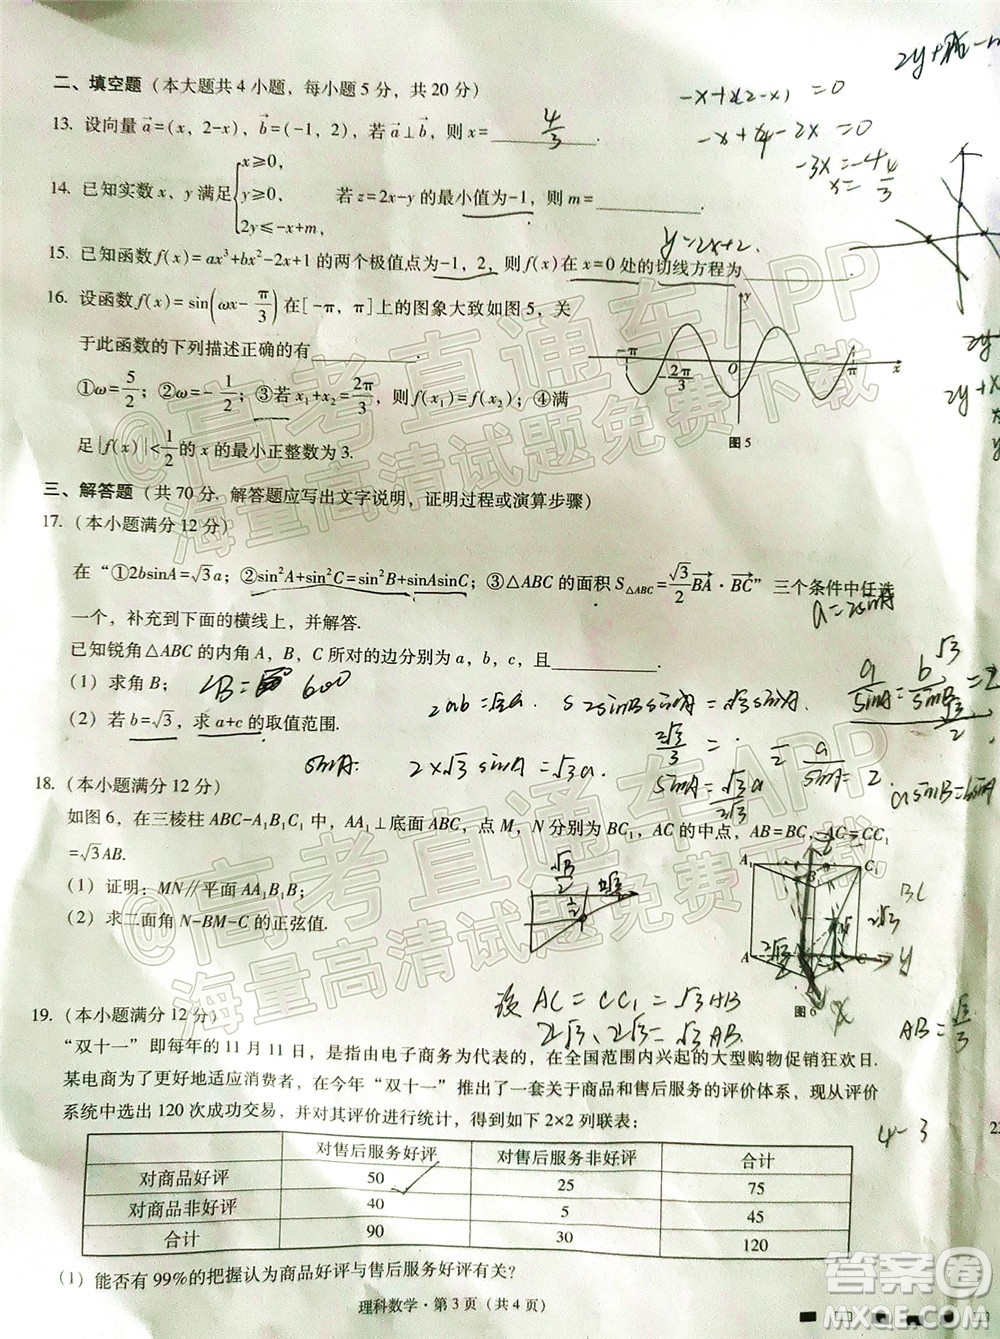 二、填空题（本大题共4小题，每小题5分，共20分）
-x+2(2-x)=0
-x+4-2x=0
-3x=-4
x=4/3
13. 设向量a⃗=(x, 2-x)，b⃗=(-1, 2)，若a⃗⊥b⃗，则x=4/3
14. 已知实数x，y满足{x≥0, y≥0, 2y≤-x+m, 若z=2x-y的最小值为-1，则m=________.
y=2x+2.
15. 已知函数f(x)=ax³+bx²-2x+1的两个极值点为-1，2，则f(x)在x=0处的切线方程为
16. 设函数f(x)=sin(ωx-π/3)在[-π，π]上的图象大致如图5，关
于此函数的下列描述正确的有________.
①ω=5/2；②ω=-1/2；③若x₁+x₂=2π/3，则f(x₁)=f(x₂)；④满
足|f(x)|<1/2的x的最小正整数为3.
-π -2π/3 O π x y
图5
三、解答题（共70分. 解答题应写出文字说明，证明过程或演算步骤）
17.（本小题满分12分）
在“①2bsinA=√3a；②sin²A+sin²C=sin²B+sinAsinC；③△ABC的面积S△ABC=√3/2 BA⃗·BC⃗”三个条件中任选
一个，补充到下面的横线上，并解答.
已知锐角△ABC的内角A，B，C所对的边分别为a，b，c，且________.
(1) 求角B；
(2) 若b=√3，求a+c的取值范围.
2×√3 sinA=√3a.
18.（本小题满分12分）
如图6，在三棱柱ABC-A₁B₁C₁中，AA₁⊥底面ABC，点M，N分别为BC₁，AC的中点，AB=BC，AC=CC₁
=√3AB.
(1) 证明：MN∥平面AA₁B₁B；
(2) 求二面角N-BM-C的正弦值.
图6
设AC=CC₁=√3AB
2√3、2√3=√3AB.
19.（本小题满分12分）
“双十一”即每年的11月11日，是指由电子商务为代表的，在全国范围内兴起的大型购物促销狂欢日.
某电商为了更好地适应消费者，在今年“双十一”推出了一套关于商品和售后服务的评价体系，现从评价
系统中选出120次成功交易，并对其评价进行统计，得到如下2×2列联表：
4-3
对售后服务好评 对售后服务非好评 合计
对商品好评 50 25 75
对商品非好评 40 5 45
合计 90 30 120
(1) 能否有99%的把握认为商品好评与售后服务好评有关？
理科数学·第3页（共4页）
@高考直通车APP
海量高清试题免费下载
@高考直通车APP
海量高清试题免费下载
答案圈
MXQE.COM